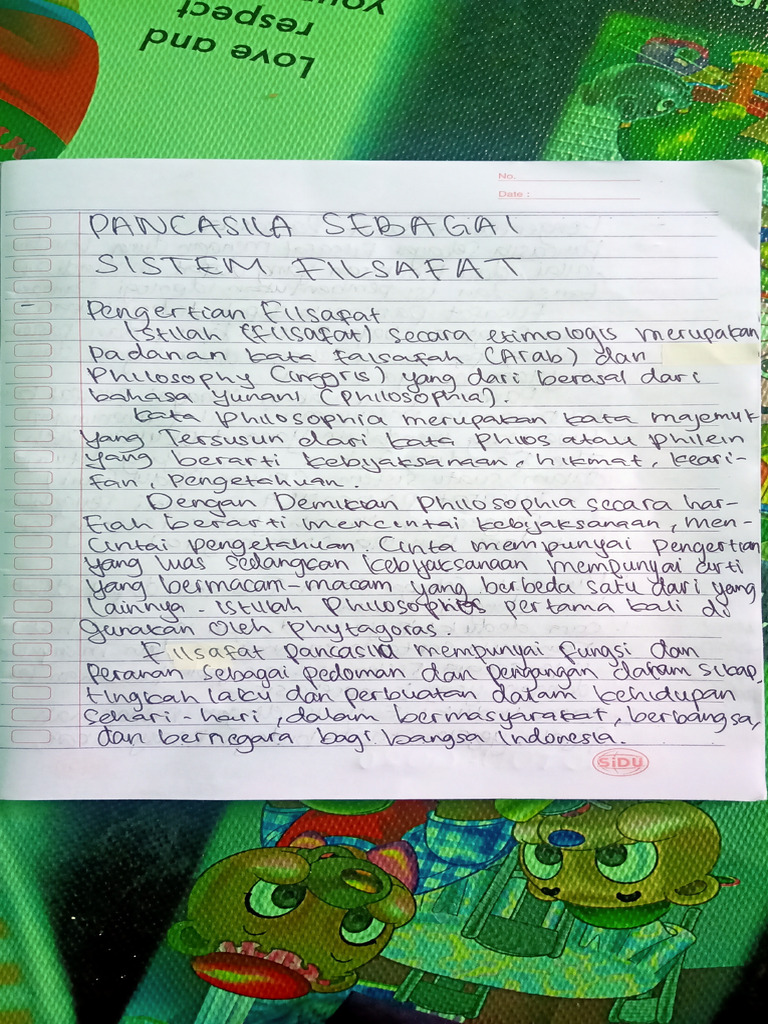 Love and
respect
No.
Date :
PANCASILA SEBAGAI
SISTEM FILSAFAT
- Pengertian Filsafat
Istilah (Filsafat) secara etimologis merupakan
padanan kata falsafah (Arab) dan
Philosophy (inggris) yang dari berasal dari
bahasa yunani (philosophia).
kata philosophia merupakan kata majemuk
yang Tersusun dari kata philos atau philein
yang berarti kebijaksanaan, hikmat, keari-
fan, pengetahuan.
Dengan Demikian philosophia secara har-
fiah berarti mencintai kebijaksanaan, men-
cintai pengetahuan. Cinta mempunyai pengertian
yang luas sedangkan kebijaksanaan mempunyai arti
yang bermacam-macam yang berbeda satu dari yang
lainnya. istilah philosophos pertama kali di
gunakan oleh phytagoras.
Filsafat pancasila mempunyai fungsi dan
peranan sebagai pedoman dan pegangan dalam sikap,
tingkah laku dan perbuatan dalam kehidupan
sehari-hari, dalam bermasyarakat, berbangsa,
dan bernegara bagi bangsa indonesia.
SiDU